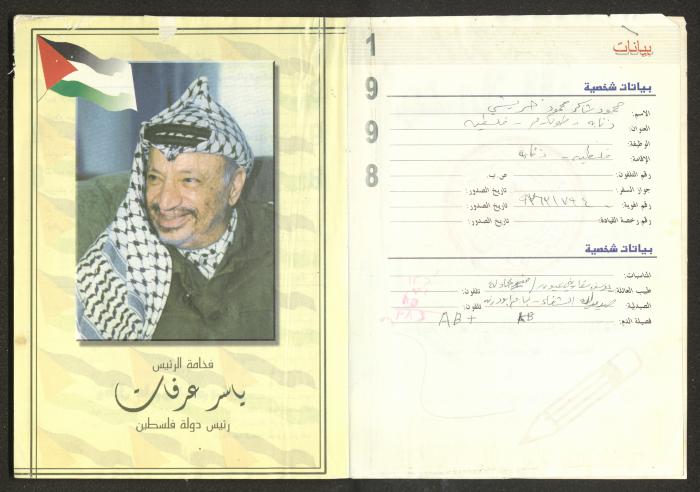 فخامة الرئيس
ياسر عرفات
رئيس دولة فلسطين
1
9
9
8
بيانات
بيانات شخصية
الاسم: محمود شاكر محمود
العنوان: ذنابه - طولكرم - فلسطين
الوظيفة:
الإقامة: فلسطين - ذنابه
رقم التلفون: ص.ب.
جواز السفر: تاريخ الصدور:
رقم الهوية: تاريخ الصدور:
رقم رخصة القيادة: تاريخ الصدور:
بيانات شخصية
المناسبات:
طبيب العائلة: تلفون:
الصيدلية: صيدلية الشفاء - تلفون:
فصيلة الدم: AB + AB